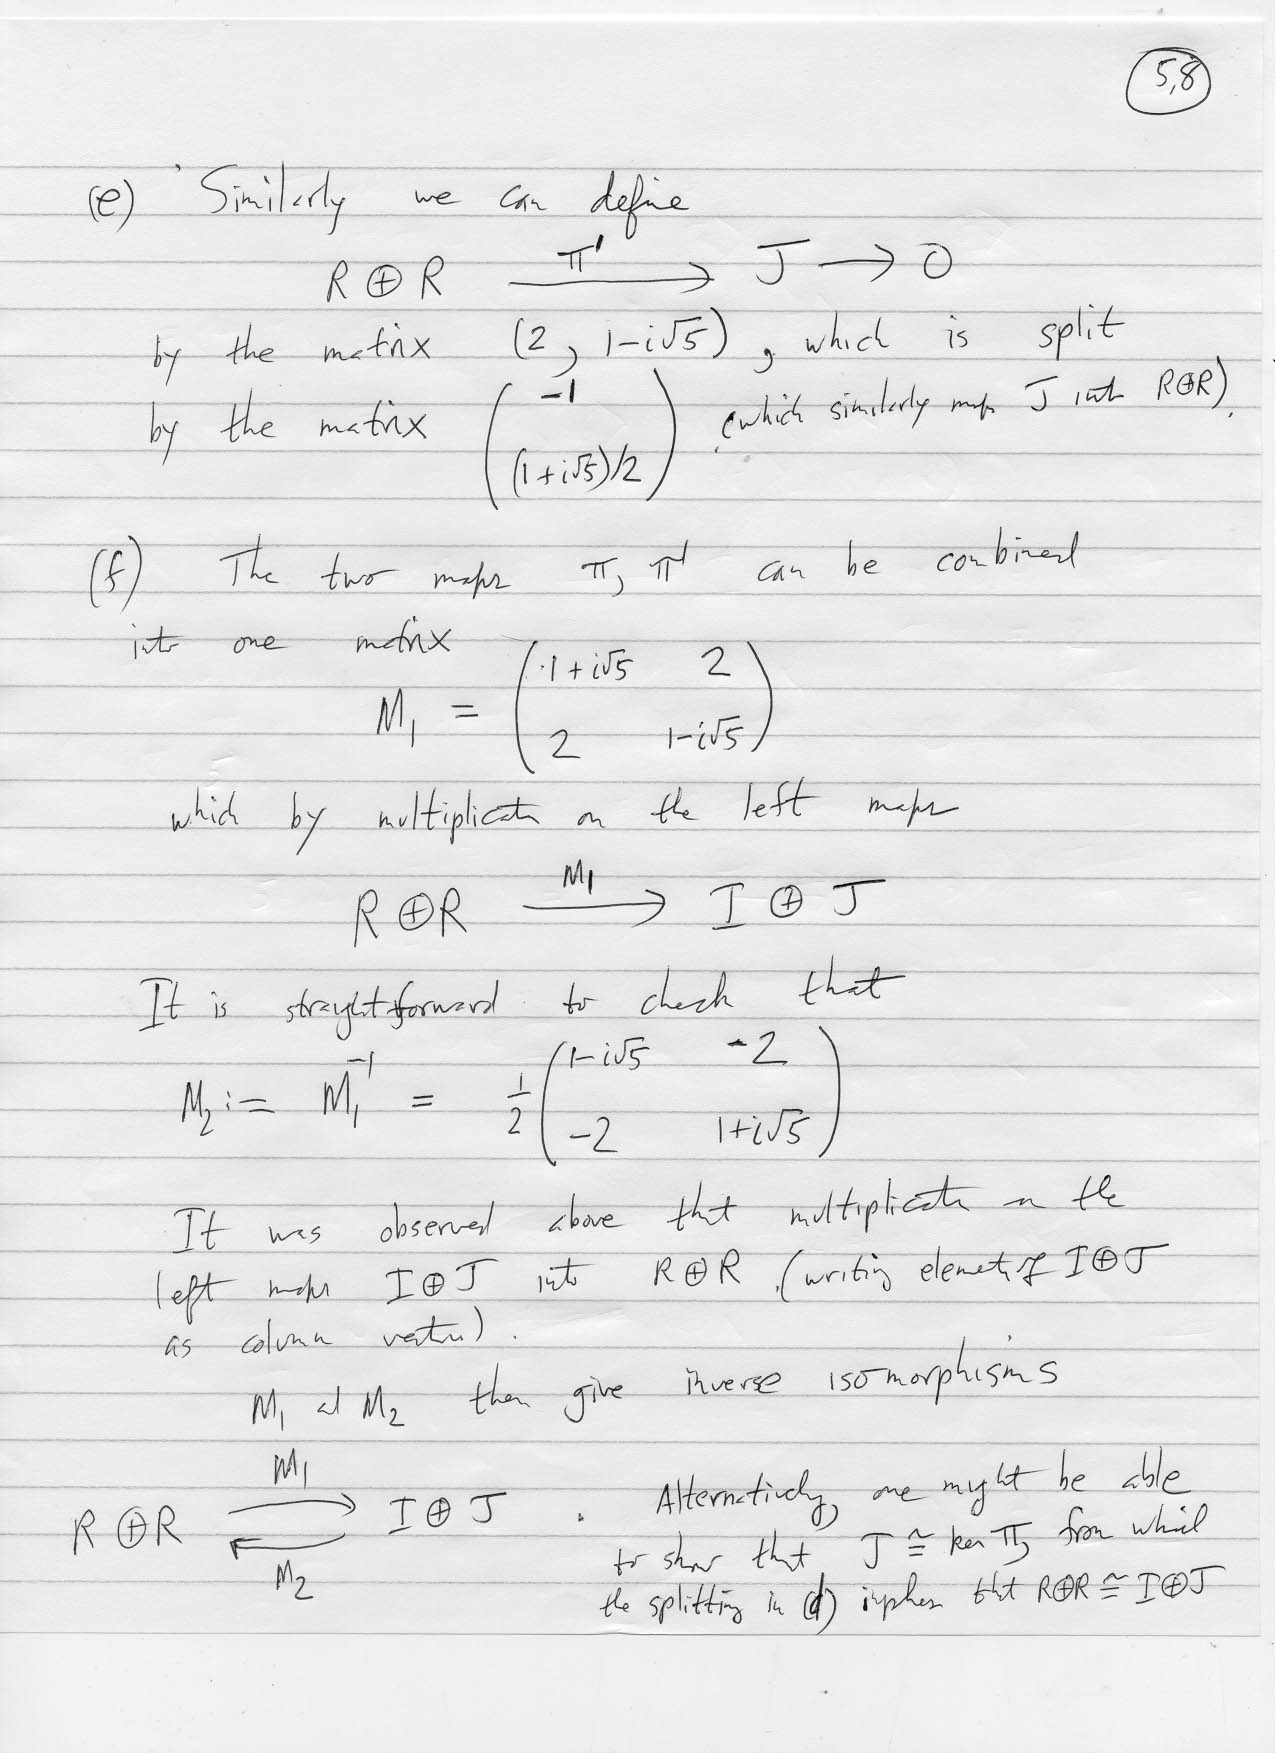 5,8
(e) Similarly we can define
R ⊕ R —π'→ J → 0
by the matrix (2, 1-i√5), which is split
by the matrix ( -1 ; (1+i√5)/2 ) (which similarly maps J into R⊕R).
(f) The two maps π, π' can be combined
into one matrix
M₁ = ( 1+i√5 2 ; 2 1-i√5 )
which by multiplication on the left maps
R ⊕ R —M₁→ I ⊕ J
It is straightforward to check that
M₂ := M₁⁻¹ = 1/2 ( 1-i√5 -2 ; -2 1+i√5 )
It was observed above that multiplication on the
left maps I ⊕ J into R ⊕ R (writing elements of I ⊕ J
as column vectors).
M₁ and M₂ then give inverse isomorphisms
R ⊕ R ⇄ I ⊕ J .
M₁
M₂
Alternatively, one might be able
to show that J ≅ ker π, from which
the splitting in (d) implies that R⊕R ≅ I⊕J